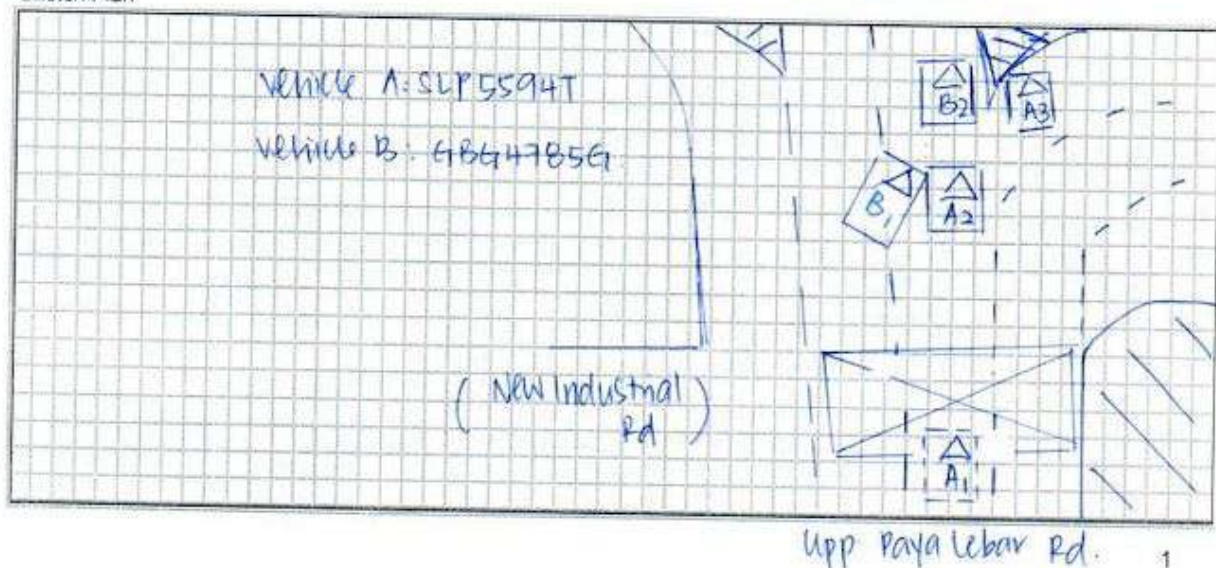 Vehicle A: SLP5594T
Vehicle B: GBG4785G
B2
A3
B1
A2
(New Industrial
Rd)
A1
Upp Paya Lebar Rd.
1